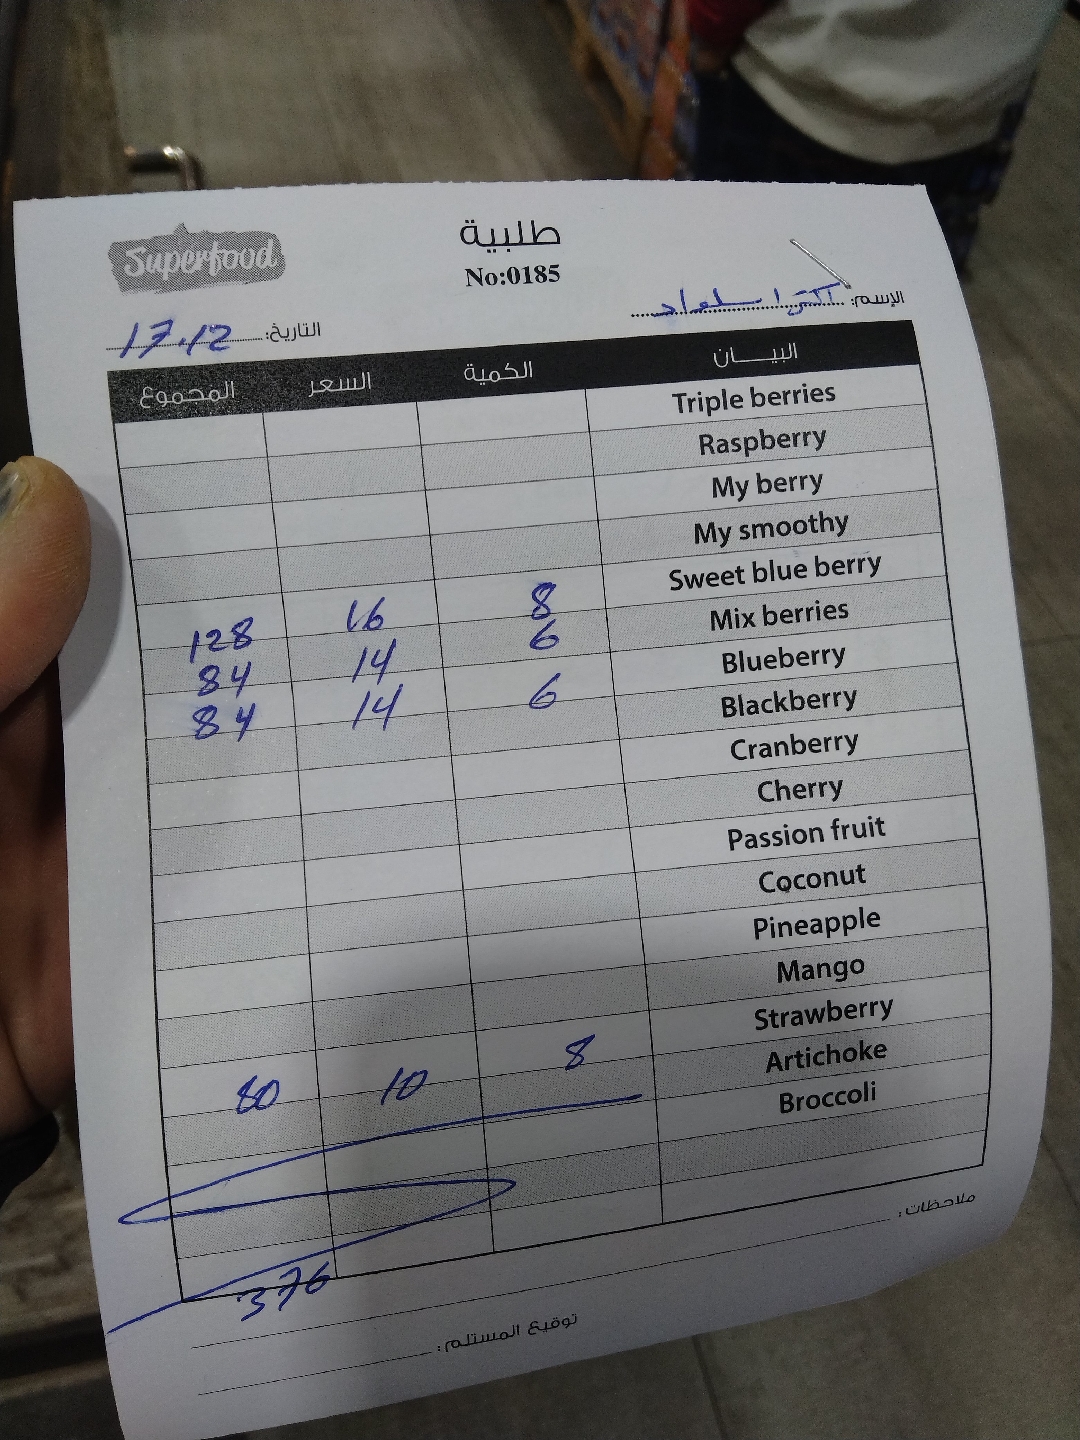 Superfood
طلبية
No:0185
الإسم:
التاريخ: 17.12
البيـــان الكمية السعر المجموع
Triple berries
Raspberry
My berry
My smoothy
Sweet blue berry 8 16 128
Mix berries 6 14 84
Blueberry 6 14 84
Blackberry
Cranberry
Cherry
Passion fruit
Coconut
Pineapple
Mango
Strawberry 8 10 80
Artichoke
Broccoli
376
ملاحظات:
توقيع المستلم: